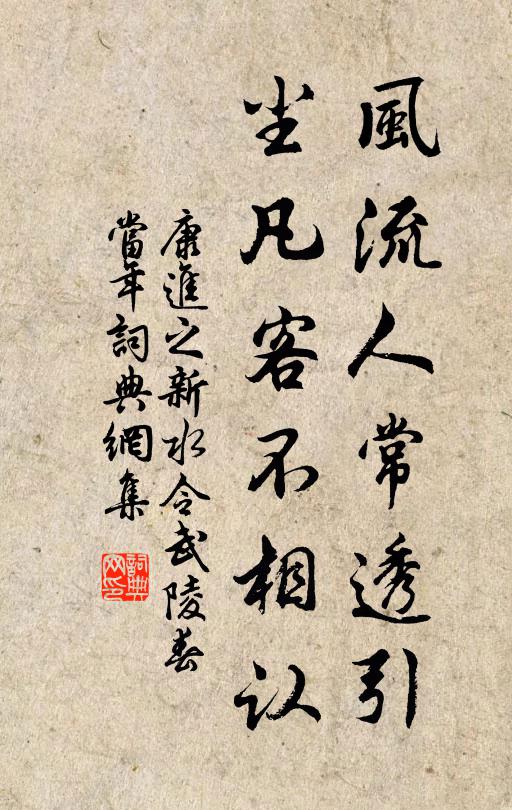 風流人常透引
尘凡客不相认
康進之新水令武陵春
當年詞典網集
詞典
网印